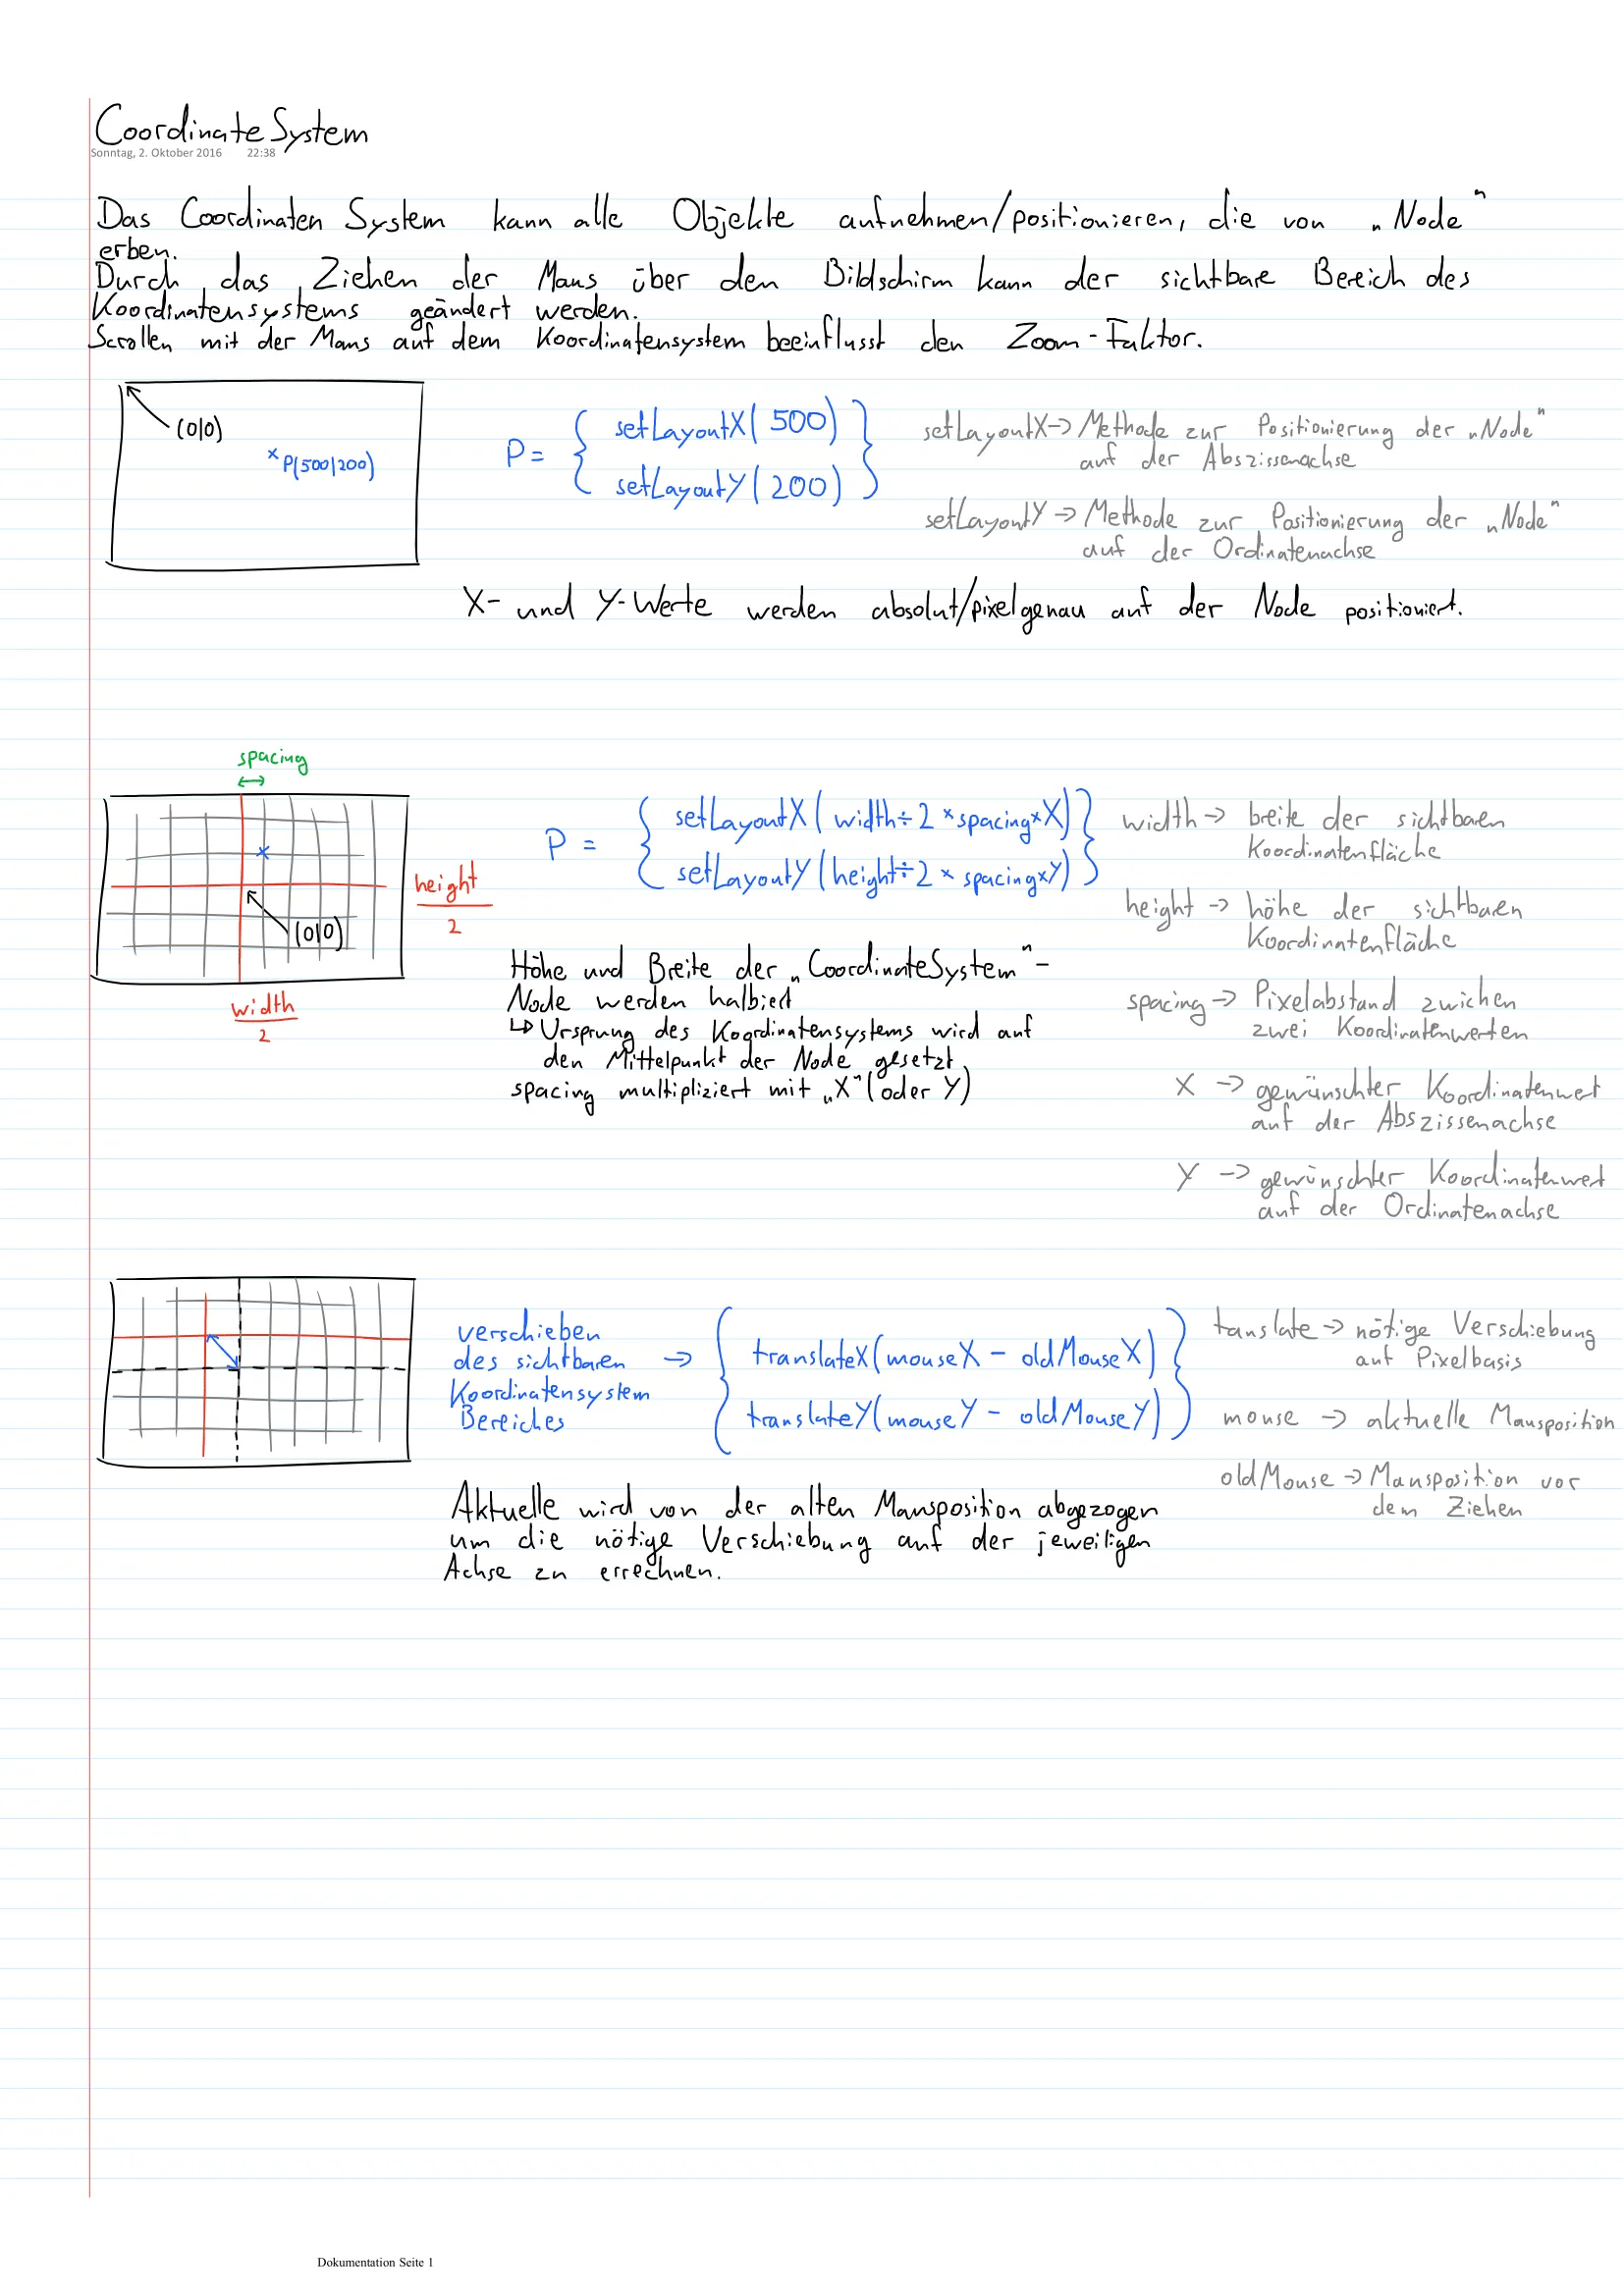 CoordinateSystem
Sonntag, 2. Oktober 2016 22:38
Das Coordinaten System kann alle Objekte aufnehmen/positionieren, die von „Node"
erben.
Durch das Ziehen der Maus über den Bildschirm kann der sichtbare Bereich des
Koordinatensystems geändert werden.
Scrollen mit der Maus auf dem Koordinatensystem beeinflusst den Zoom-Faktor.
(0|0)
P(500|200)
P = { setLayoutX(500)
setLayoutY(200) }
setLayoutX -> Methode zur Positionierung der „Node"
auf der Abszissenachse
setLayoutY -> Methode zur Positionierung der „Node"
auf der Ordinatenachse
X- und Y-Werte werden absolut/pixelgenau auf der Node positioniert.
spacing
(0|0)
height
2
width
2
P = { setLayoutX(width÷2 * spacing * X)
setLayoutY(height÷2 * spacing * Y) }
Höhe und Breite der „CoordinateSystem"-
Node werden halbiert
↳ Ursprung des Koordinatensystems wird auf
den Mittelpunkt der Node gesetzt
spacing multipliziert mit „X" (oder Y)
width -> breite der sichtbaren
Koordinatenfläche
height -> höhe der sichtbaren
Koordinatenfläche
spacing -> Pixelabstand zwichen
zwei Koordinatenwerten
X -> gewünschter Koordinatenwert
auf der Abszissenachse
Y -> gewünschter Koordinatenwert
auf der Ordinatenachse
verschieben
des sichtbaren ->
Koordinatensystem
Bereiches
{ translateX(mouseX - oldMouseX)
translateY(mouseY - oldMouseY) }
Aktuelle wird von der alten Mausposition abgezogen
um die nötige Verschiebung auf der jeweiligen
Achse zu errechnen.
tanslate -> nötige Verschiebung
auf Pixelbasis
mouse -> aktuelle Mausposition
oldMouse -> Mausposition vor
dem Ziehen
Dokumentation Seite 1